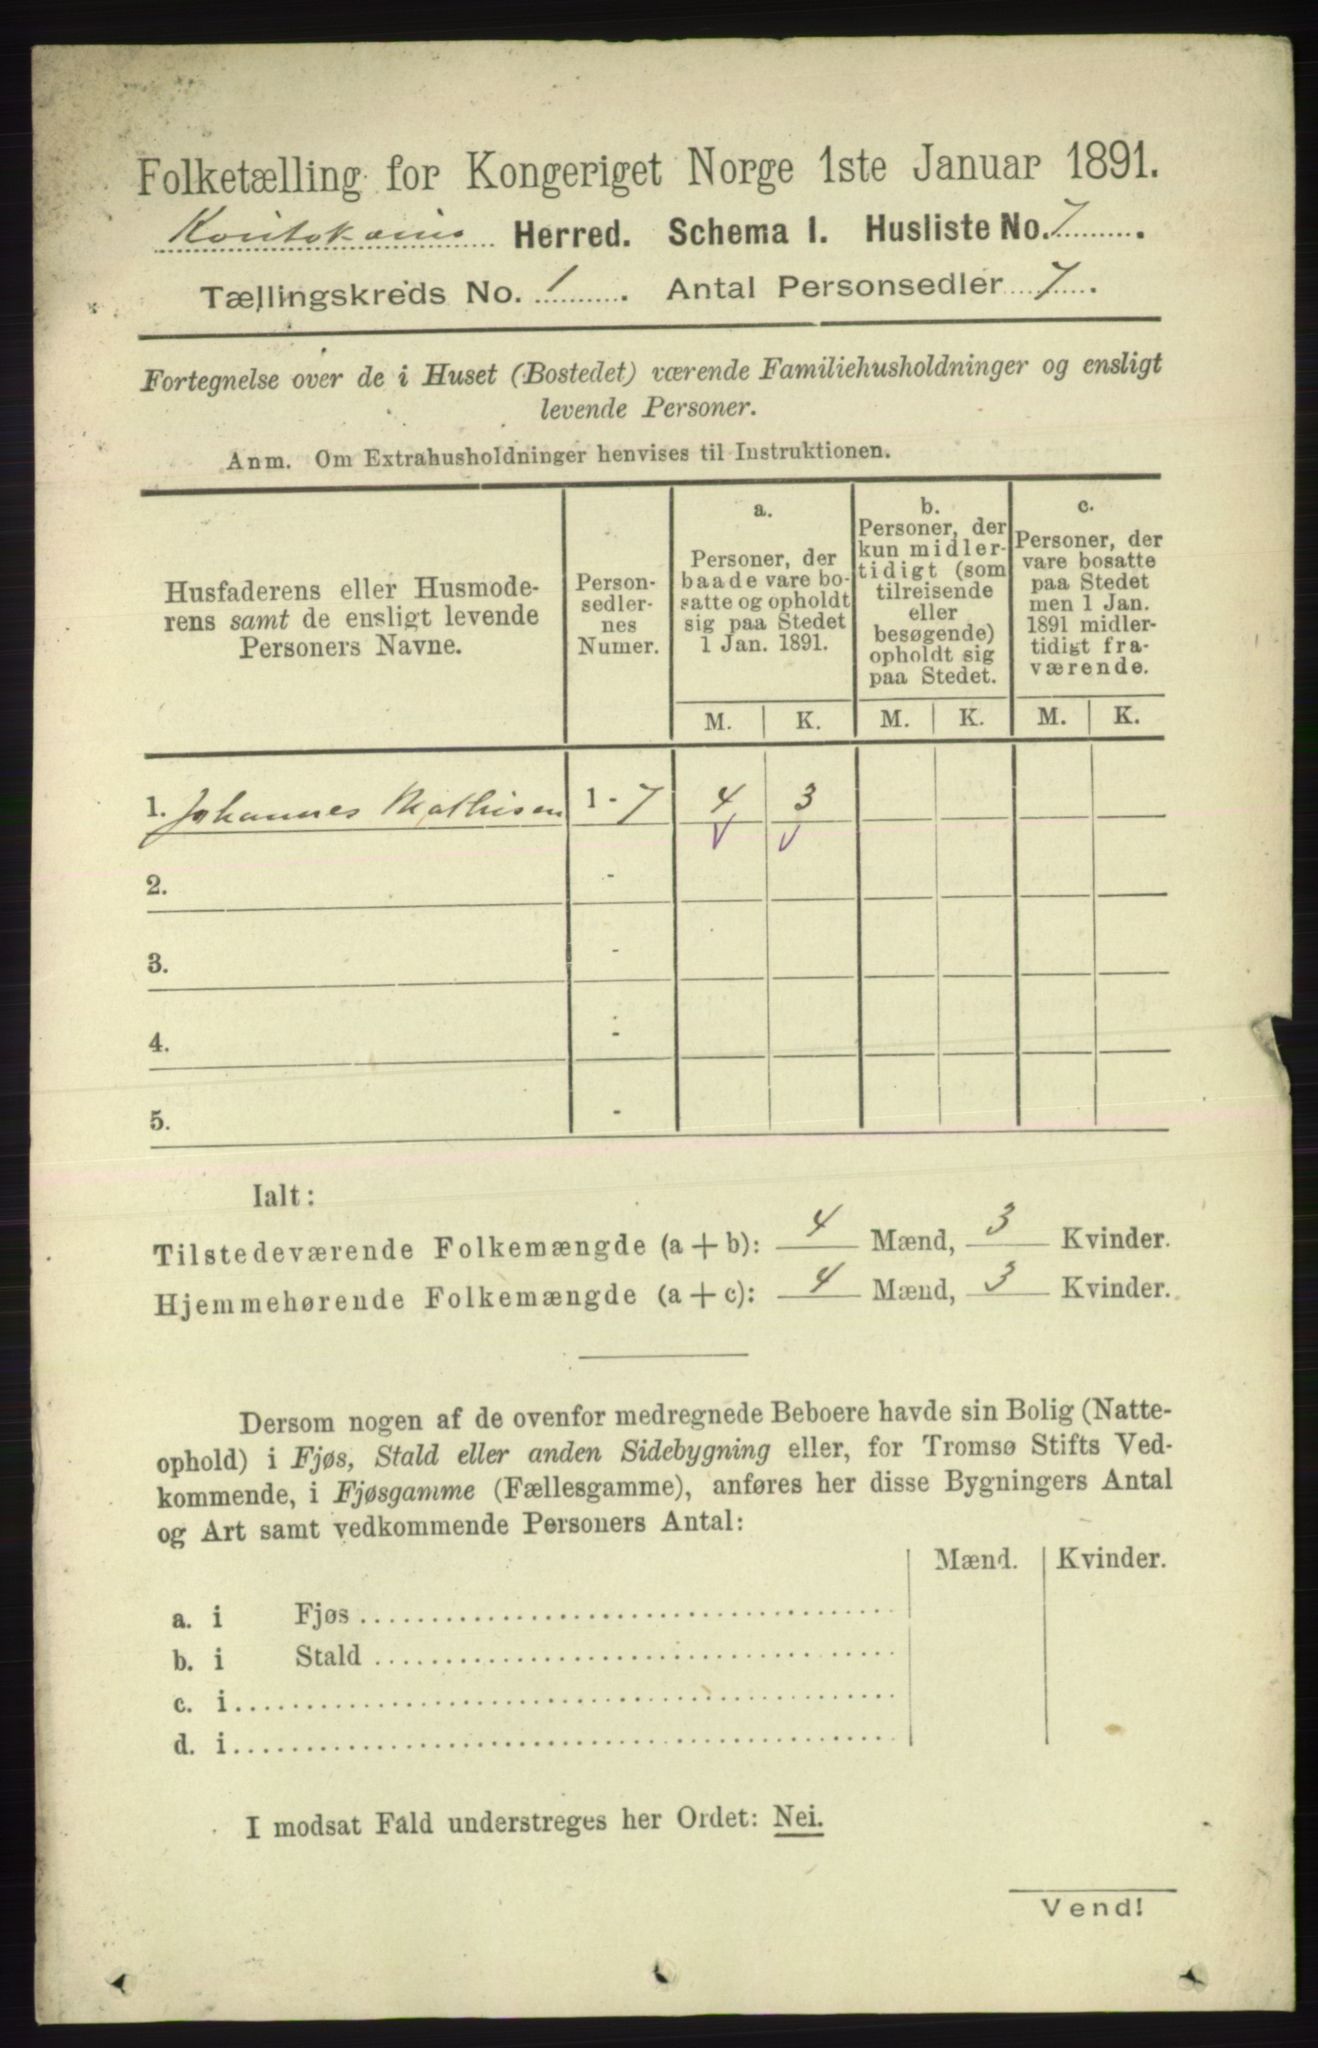 Folketælling for Kongeriget Norge 1ste Januar 1891.
Koutokeino Herred. Schema I. Husliste No. 7.
Tællingskreds No. 1. Antal Personsedler 7.
Fortegnelse over de i Huset (Bostedet) værende Familiehusholdninger og ensligt
levende Personer.
Anm. Om Extrahusholdninger henvises til Instruktionen.
Husfaderens eller Husmode-
rens samt de ensligt levende
Personers Navne.
Person-
sedler-
nes
Numer.
a.
Personer, der
baade vare bo-
satte og opholdt
sig paa Stedet
1 Jan. 1891.
b.
Personer, der
kun midler-
tidigt (som
tilreisende
eller
besøgende)
opholdt sig
paa Stedet.
c.
Personer, der
vare bosatte
paa Stedet
men 1 Jan.
1891 midler-
tidigt fra-
værende.
M. K. M. K. M. K.
1. Johannes Mathisen 1 - 7 4 3
2. -
3. -
4. -
5. -
Ialt:
Tilstedeværende Folkemængde (a + b): 4 Mænd, 3 Kvinder.
Hjemmehørende Folkemængde (a + c): 4 Mænd, 3 Kvinder.
Dersom nogen af de ovenfor medregnede Beboere havde sin Bolig (Natte-
ophold) i Fjøs, Stald eller anden Sidebygning eller, for Tromsø Stifts Ved-
kommende, i Fjøsgamme (Fællesgamme), anføres her disse Bygningers Antal
og Art samt vedkommende Personers Antal:
Mænd. Kvinder.
a. i Fjøs
b. i Stald
c. i
d. i
I modsat Fald understreges her Ordet: Nei.
Vend!